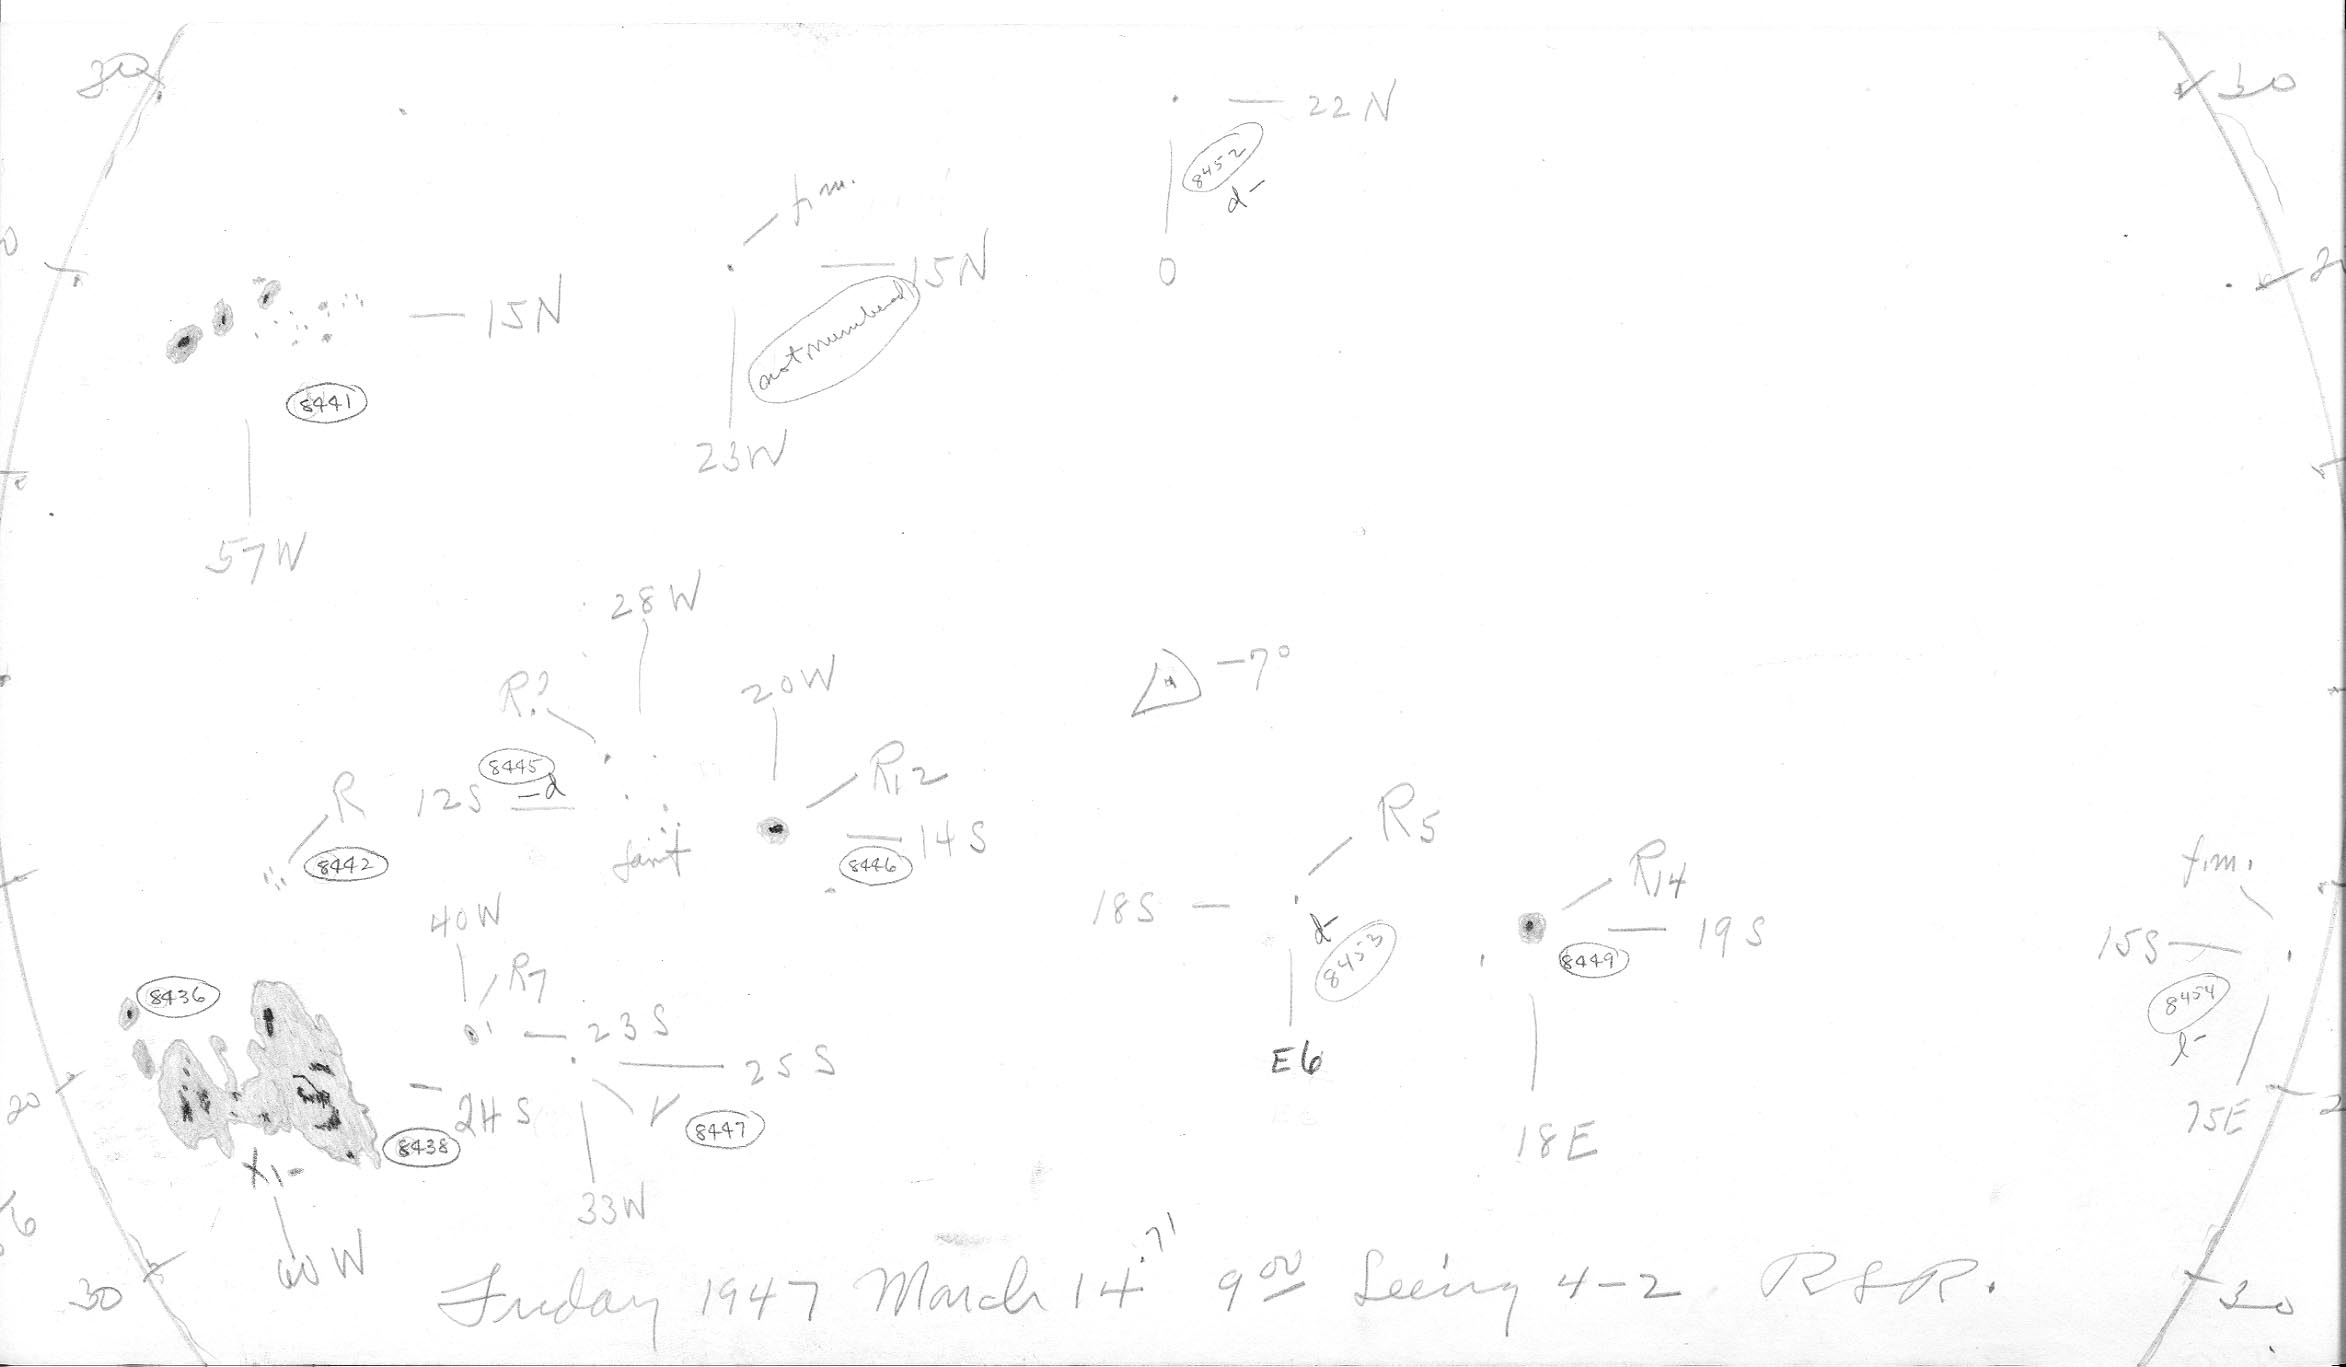 30
30
22N
8452
d-
0
f.m.
15N
not numbered
23W
15N
8441
57W
28W
R?
20W
-7°
8445
-d
12S
R
8442
faint
R12
14S
8446
R5
18S
d-
8453
E6
R14
19S
8449
18E
f.m.
15S
8454
l-
75E
40W
R7
23S
25S
V
8447
33W
8436
24S
8438
X1-
60W
20
30
30
Friday 1947 March 14.71 9 00 Seeing 4-2 RSR.